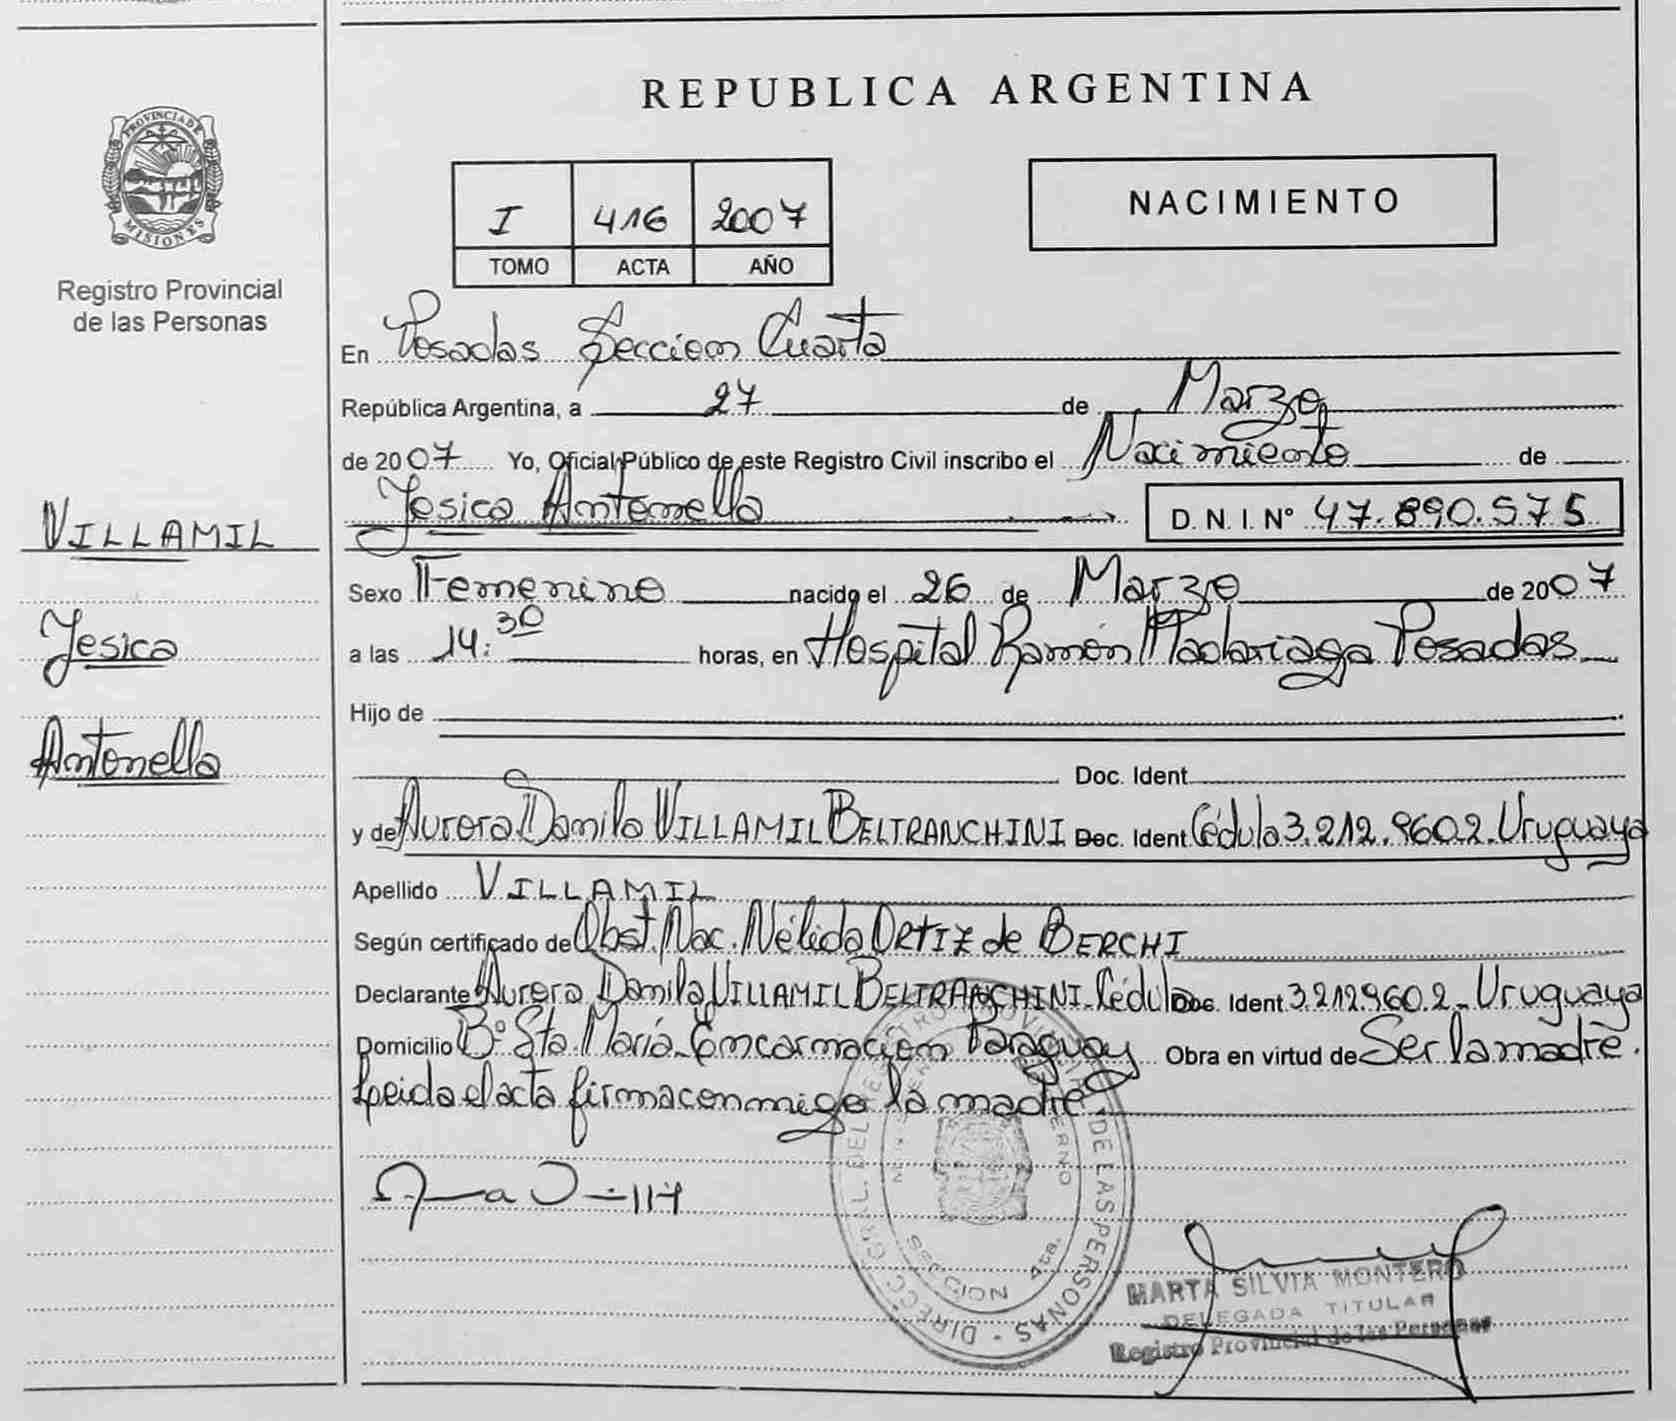 REPUBLICA ARGENTINA
PROVINCIA DE
MISIONES
Registro Provincial
de las Personas
I 416 2007
TOMO ACTA AÑO
NACIMIENTO
En Posadas Seccion Cuarta
República Argentina, a 27 de Marzo
de 2007 Yo, Oficial Público de este Registro Civil inscribo el Nacimiento de
Yesica Antonella D. N. I. N° 47.890.575
VILLAMIL
Yesica
Antonella
Sexo Femenino nacido el 26 de Marzo de 2007
a las 14:30 horas, en Hospital Ramón Madariaga Posadas
Hijo de
Doc. Ident
y de Aurora Danila VILLAMIL BELTRANCHINI Doc. Ident Cédula 3.212.960.2. Uruguaya
Apellido VILLAMIL
Según certificado de Obst. Nac. Nélida ORTIZ de BERCHI
Declarante Aurora Danila VILLAMIL BELTRANCHINI-Cédula Doc. Ident 3.212960.2- Uruguaya
Domicilio B° Sta. María-Encarnacion Paraguay Obra en virtud de Ser la madre.
Leida el acta firma conmigo la madre
DIRECC. GRAL. DEL REGISTRO PROVINCIAL DE LAS PERSONAS
SECCION 4ta.
MARTA SILVIA MONTERO
DELEGADA TITULAR
Registro Provincial de las Personas